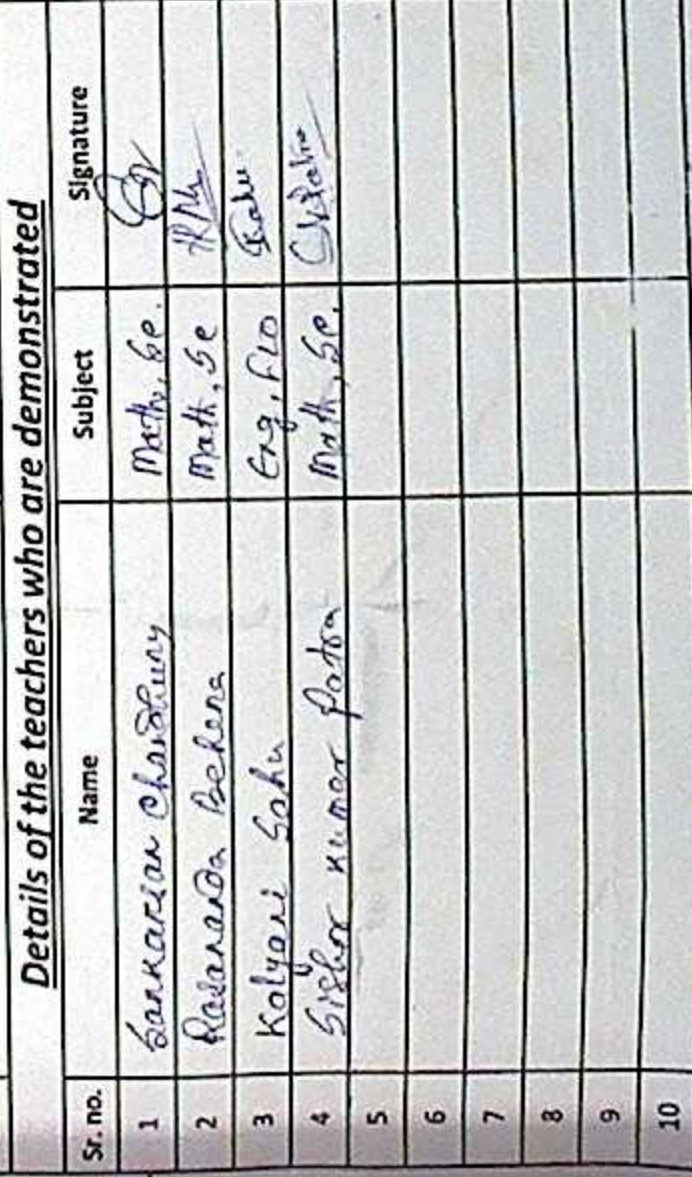 Details of the teachers who are demonstrated
Sr. no. Name Subject Signature
1 Chandhury Math, Sc.
2 Rasananda Behera Math, Sc
3 Kalyani Sahu Eng, Sahu
4 Sishor Kumar Patra Math, Sc.
5
6
7
8
9
10